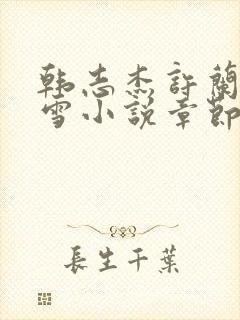 韩志杰許蘭
雪小說章節
長生千葉